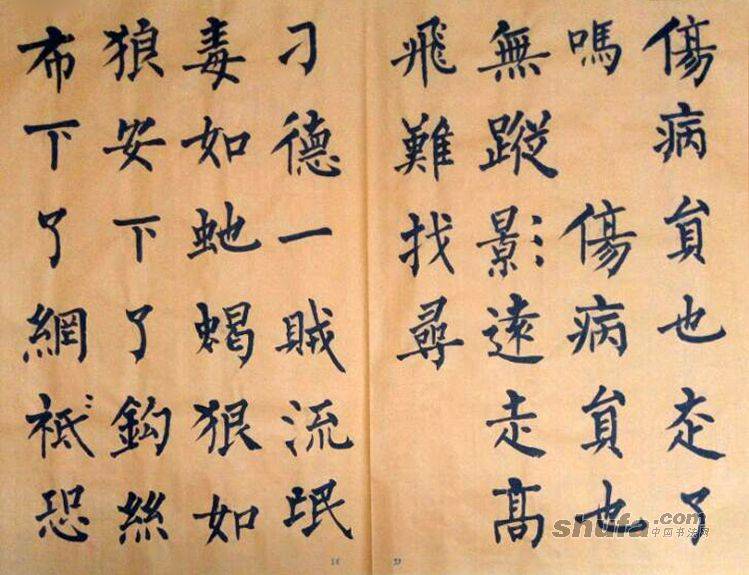 傷病貟也赱了
嗎 傷病貟也
無蹤影遠走髙
飛難找尋
刁德一賊流氓
毒如虵蝎狠如
狼安下了鈎絲
布下了網祗恐
shufa.com
中国书法网